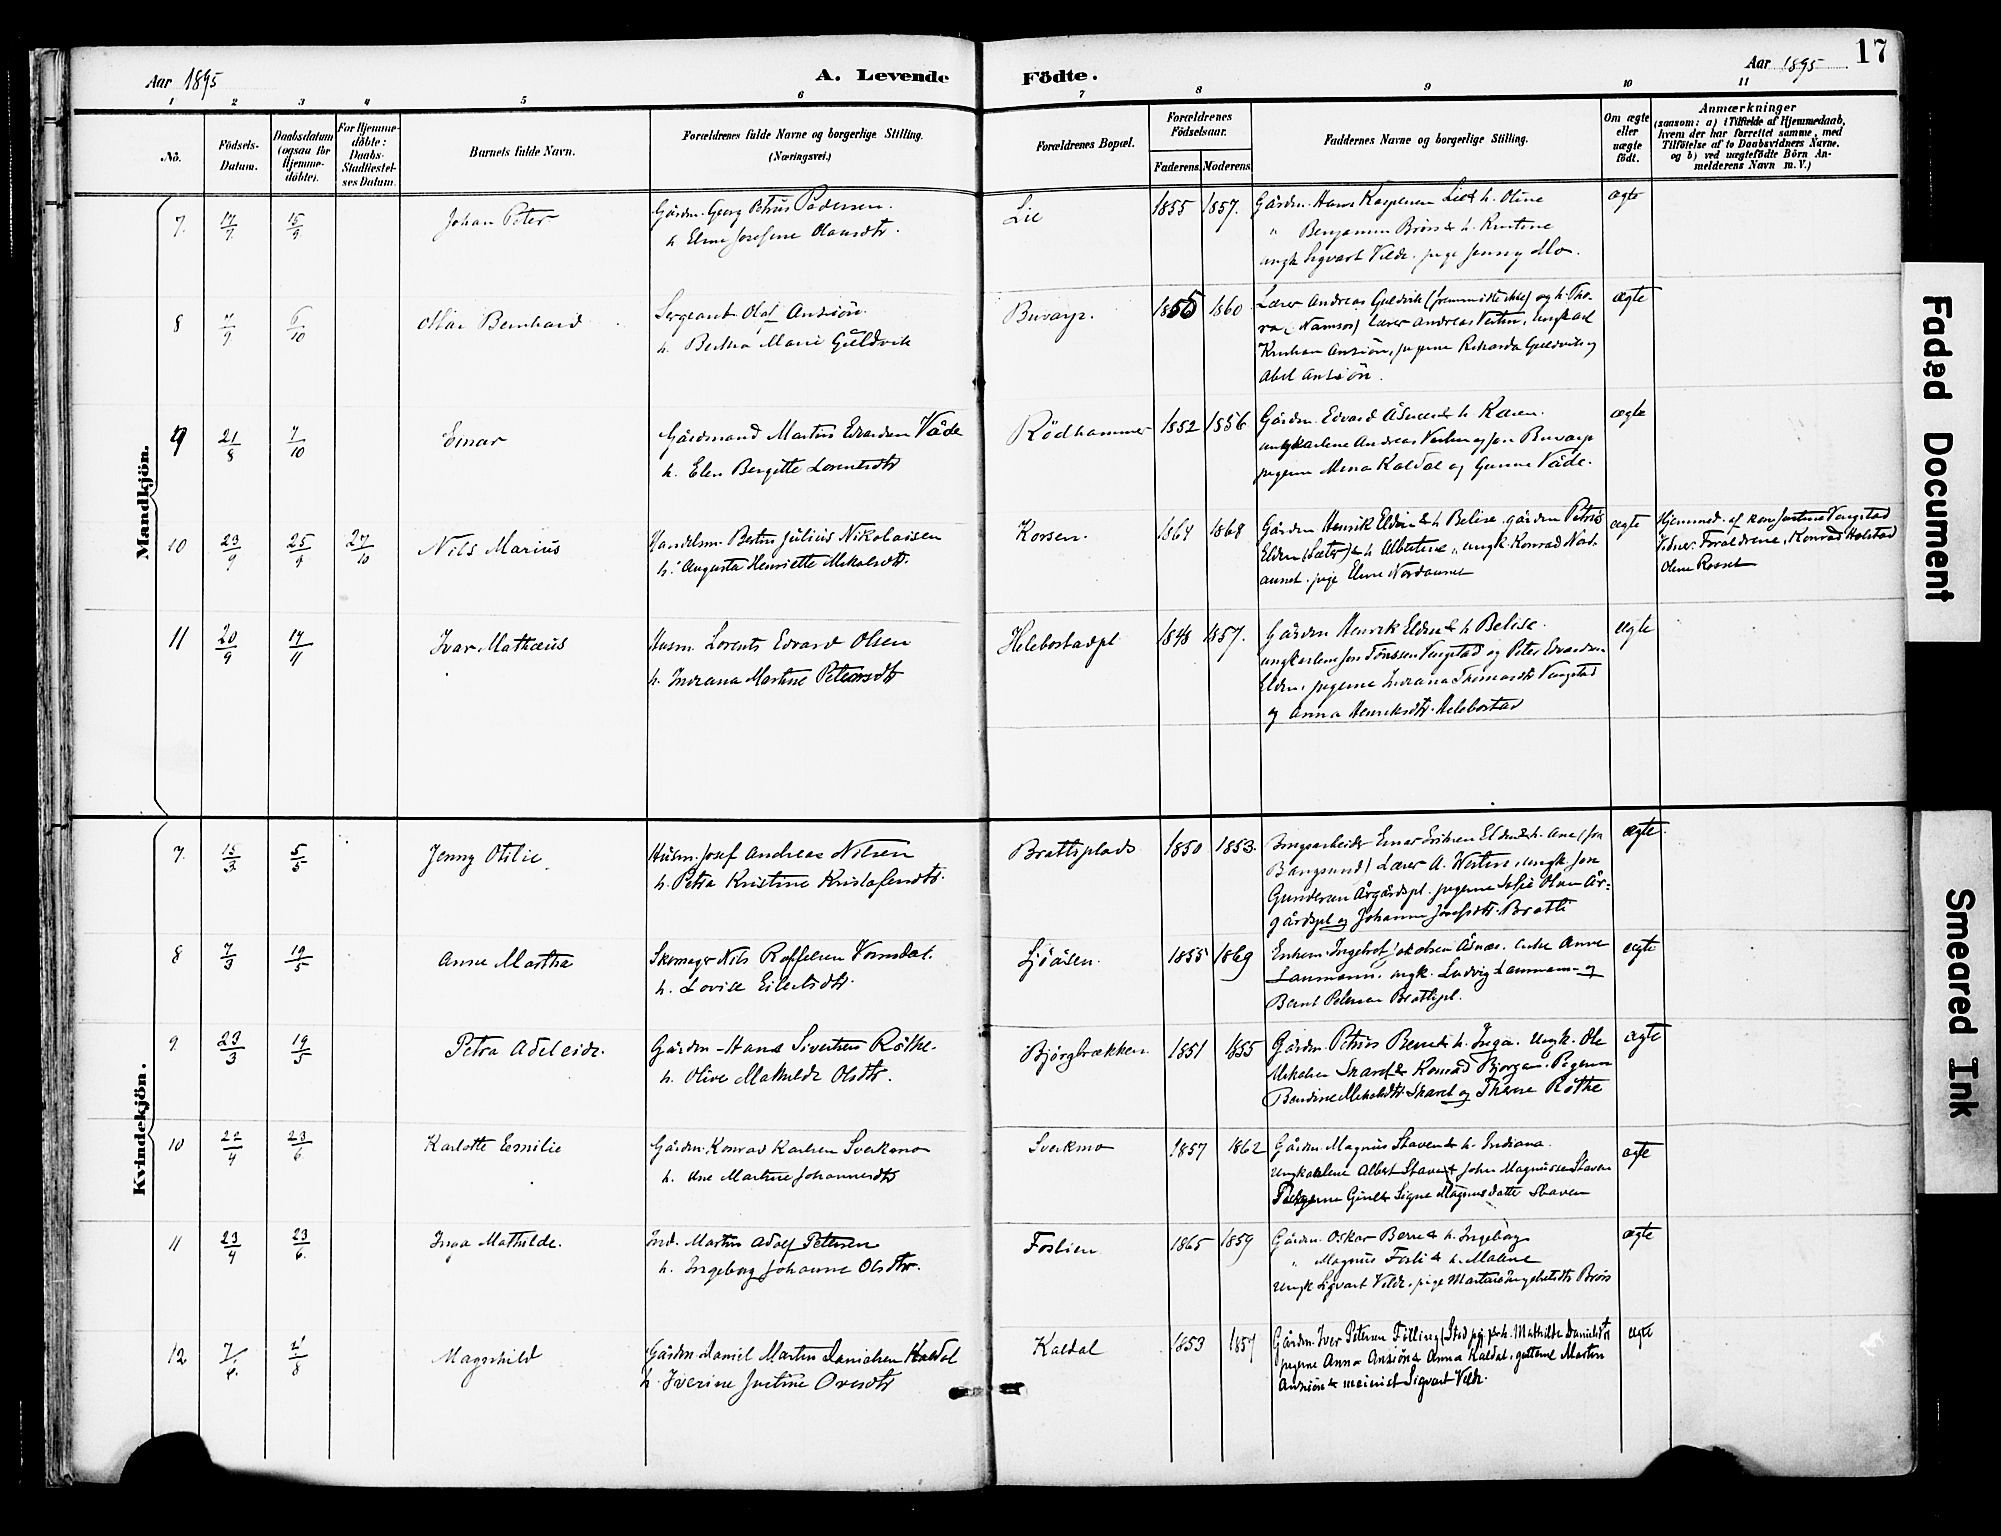 Aar 1895
A. Levende
Födte.
Aar 1895
17
1 2 3 4 5 6 7 8 9 10 11
No.
Födsels-Datum.
Daabsdatum (ogsaa for Hjemmedöbte).
For Hjemmedöbte: Daabs-Stadfæstelses Datum.
Barnets fulde Navn.
Forældrenes fulde Navne og borgerlige Stilling.
(Næringsvei.)
Forældrenes Bopæl.
Forældrenes Födselsaar.
Faderens.
Moderens.
Faddernes Navne og borgerlige Stilling.
Om ægte eller uægte födt.
Anmærkninger
(saasom: a) i Tilfælde af Hjemmedaab,
hvem der har forrettet samme, med
Tilföielse af to Daabsvidners Navne,
og b) ved uægtefödte Börn An-
melderens Navn m. V.)
Mandkjön.
7. 17/7 15/9 Johan Peter
Gårdm. Georg Petrus Pedersen.
h. Eline Josefine Olausdtr.
Lie 1855 1857.
Gårdm. Hans Kaspersen Lie & h. Oline
" Benjamin Brörs & h. Kristine
ungk. Sigvart Velde. pige Jenny Mo.
ægte
8 6/10 Bernhard
Sergeant Olaf Ansiön.
h. Bertha Marie Guldvik
Buvarp. 1855 1860
Lærer Andreas Guldvik (fremmödte ikke) og h. Tho-
ra, (Namsos) Lærer Andreas Vestin, Ungkarl
Kristian Ansiön, pigerne Rikarda Guldvik og
Abel Ansiön.
ægte
9 21/8 7/10 Einar
Gårdmand Martin Edvardsen Våde
h. Elen Bergitte Lorentsdtr
Rödhammer 1852 1856
Gårdm. Edvard Åsnes & h. Karen.
ungkarlene Andreas Vestin og Jon Buvarp
pigerne Mena Kaldal og Gunne Våde.
ægte
10 23/9 25/9 27/10 Nils Marius
Handelsm. Bertus Julius Nikolaisen
h. Augusta Henriette Mikalsdtr.
Korsen. 1864 1868
Gårdm. Henrik Elden & h. Belise. gårdm Petrus
Elden (Sæter) & h. Albertine, ungk. Konrad Nord-
aunet. pige Eline Nordaunet
ægte
Hjemmed. af Vengstad
Vidner: Forældrene, Konrad Holstad
11 20/9 17/11 Ivar Mathæus
Husm. Lorents Edvard Olsen
h. Indiana Martine Petersdtr
Helebostadpl 1848 1857.
Gårdm Henrik Elden & h. Belise.
ungkarlene Jon Tönssen Vengstad og Peter Edvardsen
Elden, pigerne Indiana Thomasdtr Vengstad
og Anna Henriksdtr. Helebostad
ægte
Kvindekjön.
7. 15/3 5/5 Jenny Otilie.
Husm. Josef Andreas Nilsen
h. Petra Kristine Kristofersdtr.
Brattiplads 1850 1853.
Brugsarbeider Einar Eriksen Elden & h. Ane (fra
Bangsund) Lærer A. Vestin, ungk. Jon
Gundersen Årgårdspl. pigerne Sofie Olsen År-
gårdspl og Johanna Josefsdtr. Bratti
ægte
8 7/3 19/5 Anne Martha
Skomager Nils Roffelsen Vomdal.
h. Lovise Eilertsdtr.
Sjöåsen. 1855 1869
Enkem. Ingebrot Jakobsen Åsnæs. enke Anne
Laumann. ungk. Ludvig Laumann og
Bernt Petersen Brattipl.
ægte
9. 23/3 19/5 Petra Adeleide.
Gårdm. Hans Sivertsen Röthe.
h. Olive Mathilde Olsdtr.
Bjørgbrækken. 1851 1855
Gårdm. Petrus Berre & h. Inga. Ungk. Ole
Mikalsen Skaret & Konrad Bjørgan. Pigerne
Bendine Mikalsdtr. Skaret og Therese Röthe
ægte
10 22/4 23/6 Karlotte Emilie
Gårdm. Konrad Karlsen Sverkmo
h. Ane Martine Johannesdtr
Sverkmo 1857 1862
Gårdm. Magnus Staven & h. Indiana.
Ungkarlene Albert Staven & John Magnussen Staven
Pigerne Gine & Signe Magnusdatter Staven
ægte
11 23/4 23/6. Inga Mathilde.
Ind. Martin Adolf Petersen
h. Ingeborg Johanne Olsdtr.
Foslien 1865 1859
Gårdm. Oskar Berre & h. Ingeborg
" Magnus Fosli & h. Maline
Ungk Sigvart Velde, pige Martha Ingebretsdtr Brörs
ægte
12 Magnhild
Gårdm Daniel Martin Danielsen Kaldal
h. Iverine Justine Ovesdtr
Kaldal 1853 1857
Gårdm. Iver Petersen Fölling h. Mathilde Danielsdtr
pigerne Anna Ansiön & Anna Kaldal, guttene Martin
Ansiön & meierist Sigvart Velde.
ægte
Faded Document
Smeared Ink